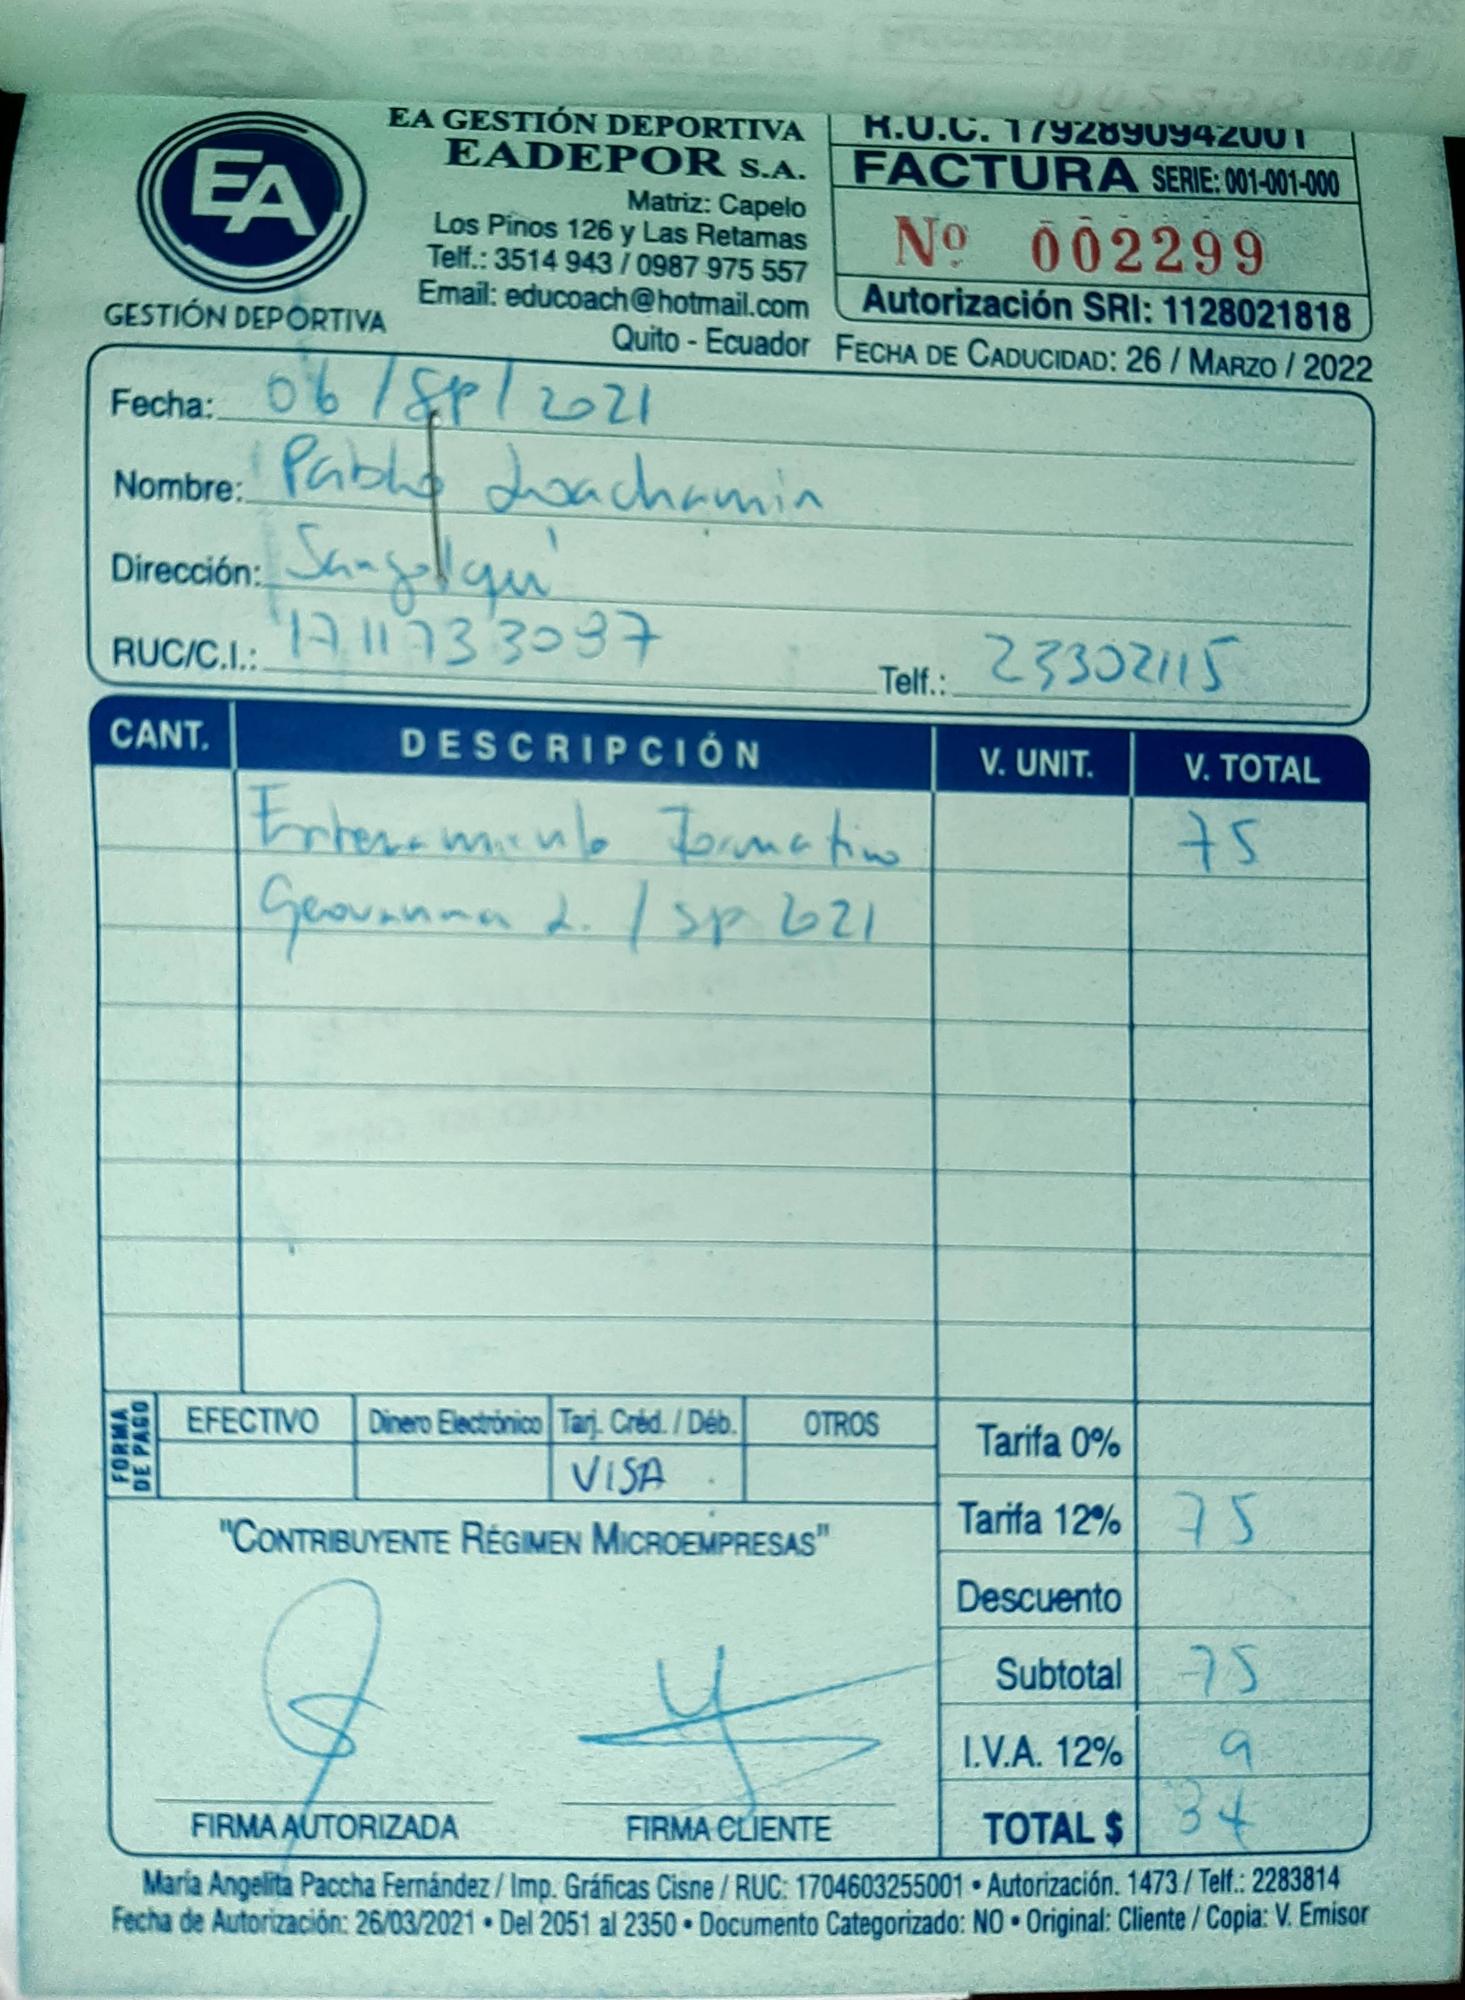 EA GESTIÓN DEPORTIVA
EADEPOR S.A.
Matriz: Capelo
Los Pinos 126 y Las Retamas
Telf.: 3514 943 / 0987 975 557
Email: educoach@hotmail.com
Quito - Ecuador
EA
GESTIÓN DEPORTIVA
R.U.C. 1792890942001
FACTURA SERIE: 001-001-000
Nº 002299
Autorización SRI: 1128021818
FECHA DE CADUCIDAD: 26 / MARZO / 2022
Fecha: 06 / Sp / 2021
Nombre: Pablo Loachamin
Dirección: Sangolquí
RUC/C.I.: 1711733097 Telf.: 23302115
CANT. DESCRIPCIÓN V. UNIT. V. TOTAL
Entrenamiento Formativo 75
Geovanna L. / Sp 2021
FORMA DE PAGO
EFECTIVO Dinero Electrónico Tarj. Créd. / Déb. OTROS
VISA
Tarifa 0%
Tarifa 12% 75
Descuento
Subtotal 75
I.V.A. 12% 9
TOTAL $ 84
"CONTRIBUYENTE RÉGIMEN MICROEMPRESAS"
FIRMA AUTORIZADA FIRMA CLIENTE
María Angelita Paccha Fernández / Imp. Gráficas Cisne / RUC: 1704603255001 • Autorización. 1473 / Telf.: 2283814
Fecha de Autorización: 26/03/2021 • Del 2051 al 2350 • Documento Categorizado: NO • Original: Cliente / Copia: V. Emisor